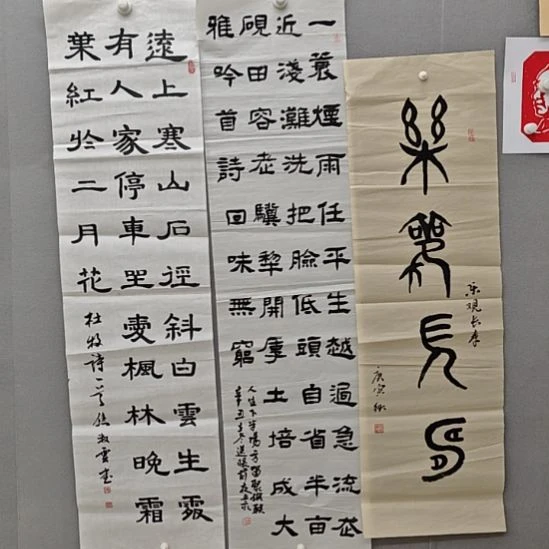 遠上寒山石徑斜白雲生處
有人家停車坐愛楓林晚霜
葉紅於二月花
杜牧詩一首
一蓑煙雨任平生越過急流
近淺灘洗把臉低頭自省半亩
硯田容老驥犂開厚土培成大
雅吟首詩回味無窮
人生下半場
辛丑
樂觀長壽
乐观长寿
庚寅